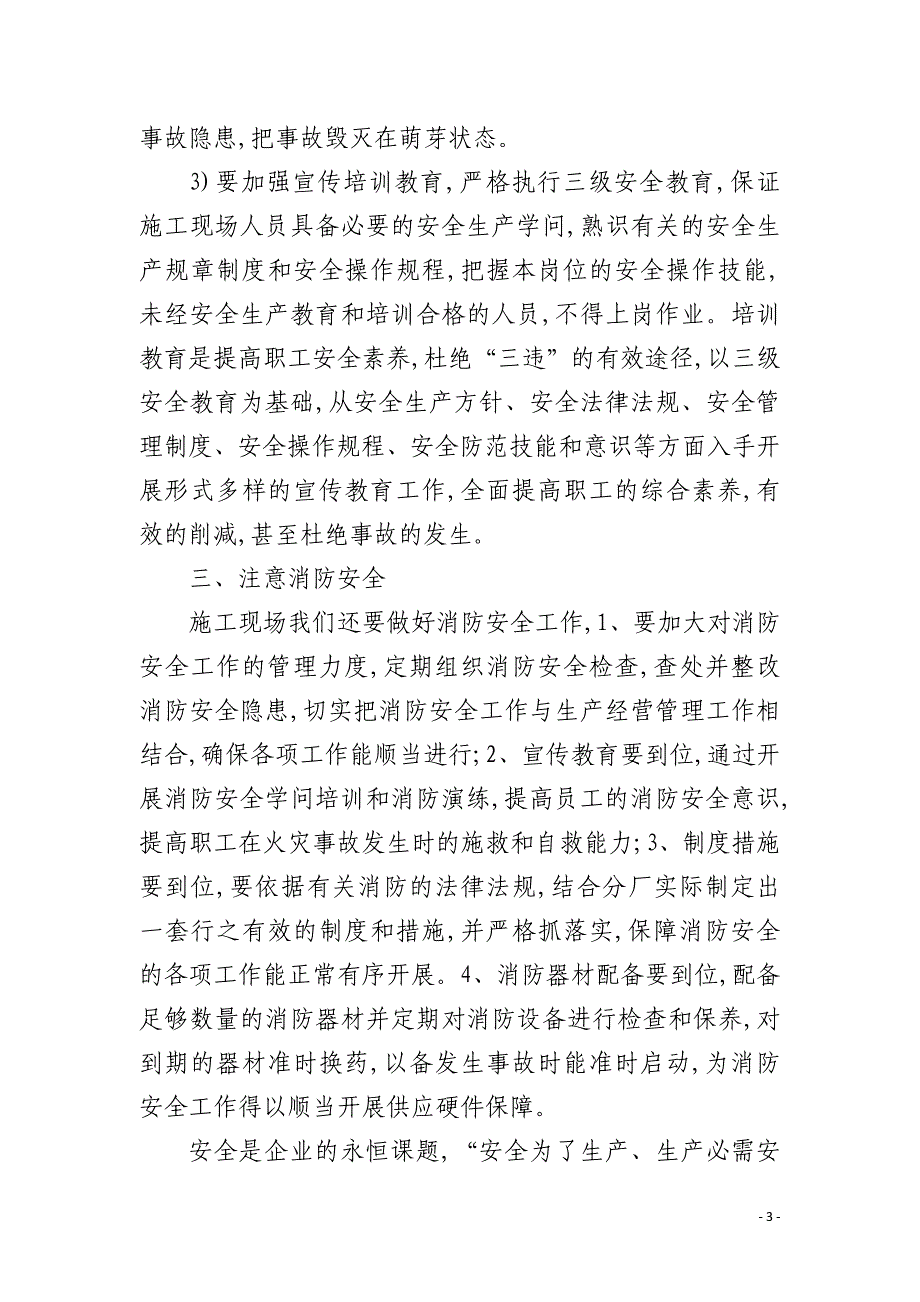 事故隐患,把事故毁灭在萌芽状态。
3)要加强宣传培训教育,严格执行三级安全教育,保证
施工现场人员具备必要的安全生产学问,熟识有关的安全生
产规章制度和安全操作规程,把握本岗位的安全操作技能,
未经安全生产教育和培训合格的人员,不得上岗作业。培训
教育是提高职工安全素养,杜绝“三违”的有效途径,以三级
安全教育为基础,从安全生产方针、安全法律法规、安全管
理制度、安全操作规程、安全防范技能和意识等方面入手开
展形式多样的宣传教育工作,全面提高职工的综合素养,有
效的削减,甚至杜绝事故的发生。
三、注意消防安全
施工现场我们还要做好消防安全工作,1、要加大对消防
安全工作的管理力度,定期组织消防安全检查,查处并整改
消防安全隐患,切实把消防安全工作与生产经营管理工作相
结合,确保各项工作能顺当进行;2、宣传教育要到位,通过开
展消防安全学问培训和消防演练,提高员工的消防安全意识,
提高职工在火灾事故发生时的施救和自救能力;3、制度措施
要到位,要依据有关消防的法律法规,结合分厂实际制定出
一套行之有效的制度和措施,并严格抓落实,保障消防安全
的各项工作能正常有序开展。4、消防器材配备要到位,配备
足够数量的消防器材并定期对消防设备进行检查和保养,对
到期的器材准时换药,以备发生事故时能准时启动,为消防
安全工作得以顺当开展供应硬件保障。
安全是企业的永恒课题,“安全为了生产、生产必需安
- 3 -